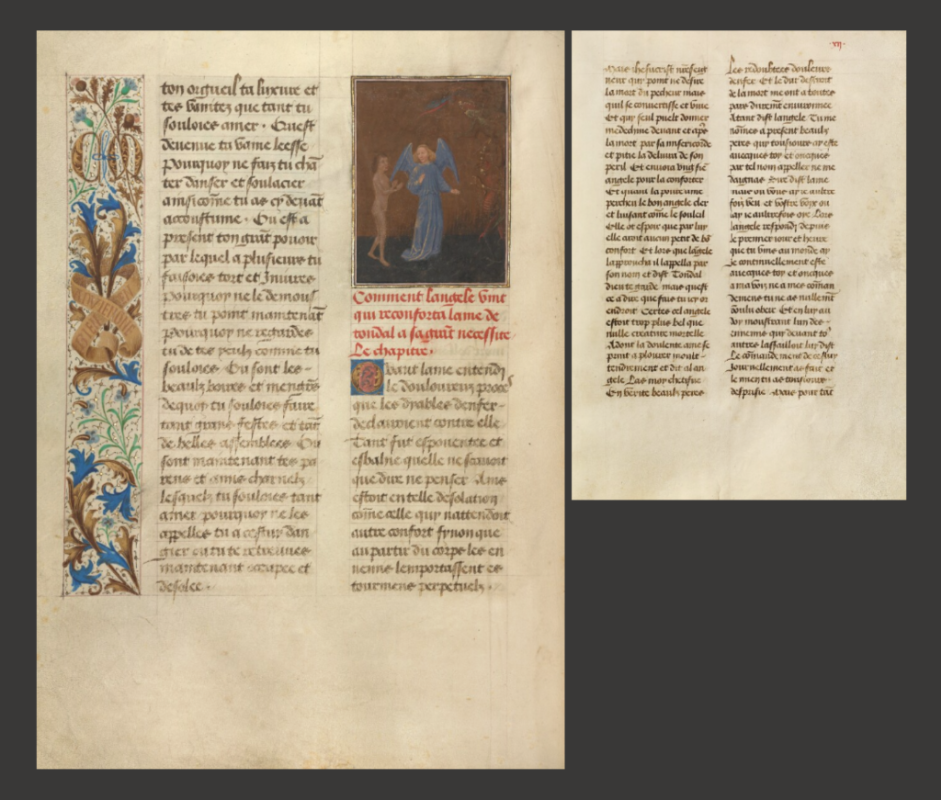 ton orgueil ta luxure et
tes vanitez que tant tu
souloies amer · Qu est
deuenue ta vaine leesse
Pourquoy ne fais tu chā
ter danser et soulacier
ainsi cōme tu as cy deuāt
acoustume · Ou est a
present ton grāt pouoir
par lequel a plusieurs tu
faisoies tort et Iniures
pourquoy ne le demous
tres tu point maintenāt
Pourquoy ne regardes
tu de tes yeulx comme tu
souloies · Ou sont les
beaulx boires et mengiers
de quoy tu souloies faire
tant grans festes et tāt
de belles assemblees Ou
sont maintenant tes pa
rens et amis charnelz
lesquelz tu souloies tant
amer pourquoy ne les
appelles tu a cestui dan
gier ou tu te retreuues
maintenant occupee et
desolee ·
Comment langele vint
qui reconforta lame de
tondal a sa grāt necessite
Le chapitre ·
Quant lame entendi
le douloureux proces
que les dyables denfer
declairoient contre elle
Tant fut espouentee et
esbahie quelle ne scauoit
que dire ne penser Ains
estoit en telle desolation
cōme celle qui nattendoit
autre confort synon que
au partir du corps les en
nemis lemportassent es
tourmens perpetuelz ·
·vij·
Mais ihesucrist nr̄e seign
neur qui point ne desire
la mort du pecheur mais
quil se conuertisse et viue
Et qui seul peult donner
medechine deuant et apres
la mort par sa misericorde
et pitie la deliura de son
peril Et enuoia vng sien
angele pour la conforter
Et quant la poure ame
percheu le bon angele cler
et luisant cōme le souleil
Elle ot espoir que par lui
elle auroit aucun petit de bō
confort Et lors que langele
lapproucha il lappella par
son nom et dist Tondal
dieu te garde mais quest
ce a dire que fais tu icy or
endroit Certes cel angele
estoit trop plus bel que
nulle creature mortelle
Adont la doulente ame se
prinst a plourer moult
tendrement et dit al an
gele Las moy chetiue
En verite beaulx peres
Les redoubtees douleurs
denfer Et le dur destroit
de la mort me ont a toutes
pars durement enuironnee
Atant dist langele Tu me
nōmes a present beaulx
peres qui tousiours ay este
auecques toy et oncques
par tel nom appeller ne me
daignas Sire dist lame
naie ou vous ay ie aultre
fois veu et vostre voix ou
ay ie aultrefois oye Lors
langele respondj depuis
le premier iour et heure
que tu vins au monde ay
Je continuellement este
auecques toy et oncques
a ma voix ne a mes cōman
demens tu ne as nullemt
voulu obeir Et en lui au
doy moustrant lun des
ennemis qui deuant to9
autres lassailloit luy dist
Le cōmandement de cestuy
Journellement as fait et
le mien tu as tousiours
desprisie Mais pour tāt